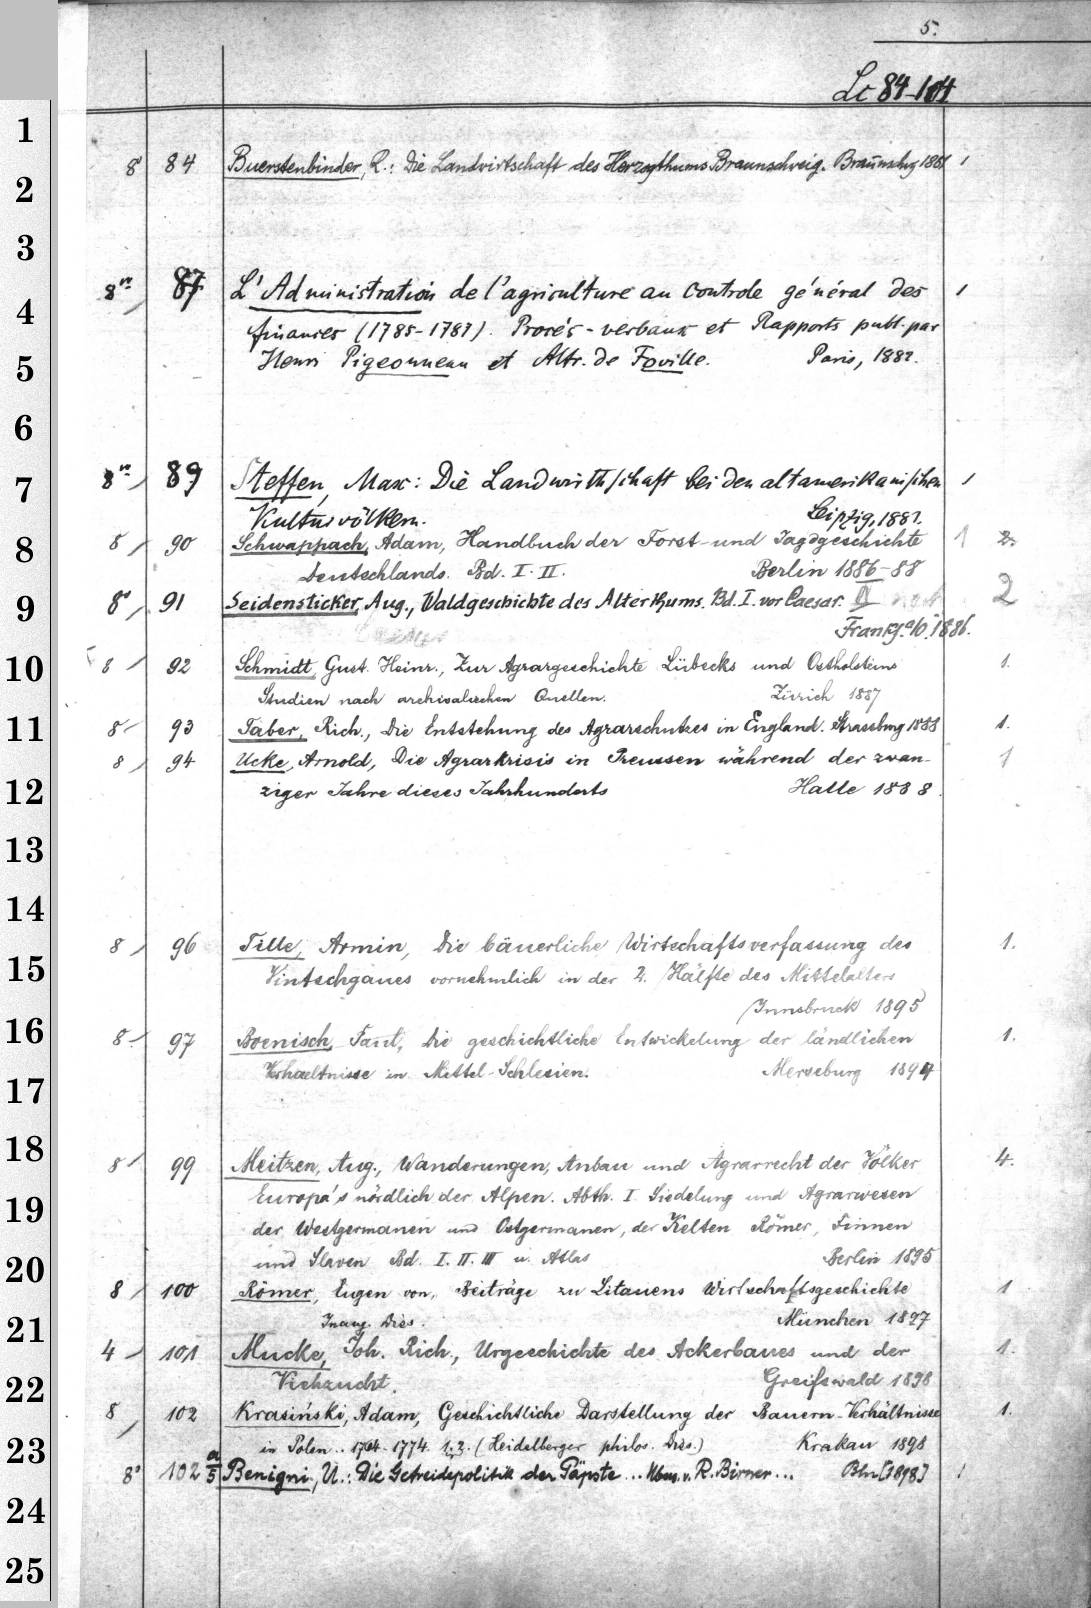 5.
Lc 84-104
1
8° 84 Buerstenbinder, R.: Die Landwirtschaft des Herzogthums Braunschweig. Braunschwg 1881 1
2
3
8° 87 L'Administration de l'agriculture au controle général des 1
4
finances (1785-1787). Procés-verbaux et Rapports publ. par
5
Henri Pigeonneau et Alfr. de Foville. Paris, 1882.
6
7
8° 89 Steffen, Max: Die Landwirthschaft bei den altamerikanischen 1
Kulturvölkern. Leipzig, 1883.
8
8 90 Schwappach, Adam, Handbuch der Forst- und Jagdgeschichte 1 2.
Deutschlands. Bd. I. II. Berlin 1886-88
9
8° 91 Seidensticker, Aug., Waldgeschichte des Alterthums. Bd. I. vor Caesar. II 2
Frankf. a/O. 1886.
10
8 92 Schmidt, Gust. Heinr., Zur Agrargeschichte Lübecks und Ostholsteins 1.
Studien nach archivalischen Quellen. Zürich 1887
11
8 93 Faber, Rich., Die Entstehung des Agrarschutzes in England. Strassburg 1888 1.
8 94 Ucke, Arnold, Die Agrarkrisis in Preussen während der zwan- 1
12
ziger Jahre dieses Jahrhunderts Halle 1888.
13
14
15
8 96 Tille, Armin, Die bäuerliche Wirtschaftsverfassung des 1.
Vintschgaues vornehmlich in der 2. Hälfte des Mittelalters
Innsbruck 1895
16
8. 97 Boenisch, Paul, Die geschichtliche Entwickelung der ländlichen 1.
Verhaeltnisse in Mittel-Schlesien. Merseburg 1894
17
18
8 99 Meitzen, Aug., Wanderungen, Anbau und Agrarrecht der Völker 4.
Europa's nördlich der Alpen. Abth. I. Siedelung und Agrarwesen
19
der Westgermanen und Ostgermanen, der Kelten Römer, Finnen
20
und Slaven Bd. I. II. III u. Atlas Berlin 1895
8 100 Römer, Eugen von, Beiträge zu Litauens Wirtschaftsgeschichte 1
Inaug. Diss. München 1897
21
4 101 Mucke, Joh. Rich., Urgeschichte des Ackerbaues und der 1.
22
Viehzucht. Greifswald 1898
8 102 Krasiński, Adam, Geschichtliche Darstellung der Bauern-Verhältnisse 1.
23
in Polen.. 1764-1774. 1. 2. (Heidelberger philos. Diss.) Krakau 1898
8° 102 a/5 Benigni, U.: Die Getreidepolitik der Päpste... Übers. v. R. Birner... Bln [1898] 1
24
25